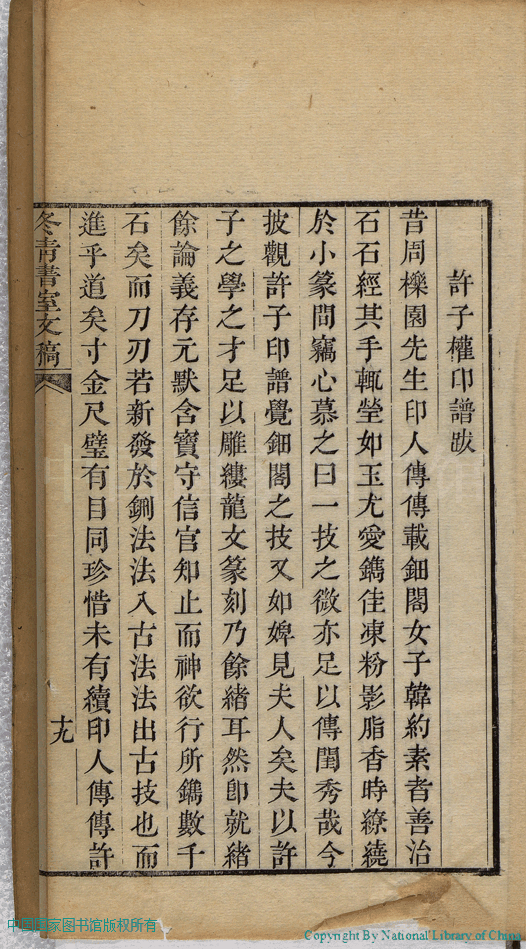 許子權印譜跋
昔周櫟園先生印人傳傳載鈿閣女子韓約素者善治
石石經其手輒瑩如玉尤愛鐫佳凍粉影脂香時繚繞
於小篆間竊心慕之曰一技之微亦足以傳閨秀哉今
披觀許子印譜覺鈿閣之技又如婢見夫人矣夫以許
子之學之才足以雕縷龍文篆刻乃餘緒耳然卽就緒
餘論義存元默含寶守信官知止而神欲行所鐫數千
石矣而刀刃若新發於鉶法法入古法法出古技也而
進乎道矣寸金尺璧有目同珍惜未有續印人傳傳許
冬青書室文稿
十九
中国国家图书馆版权所有
Copyright By National Library of China